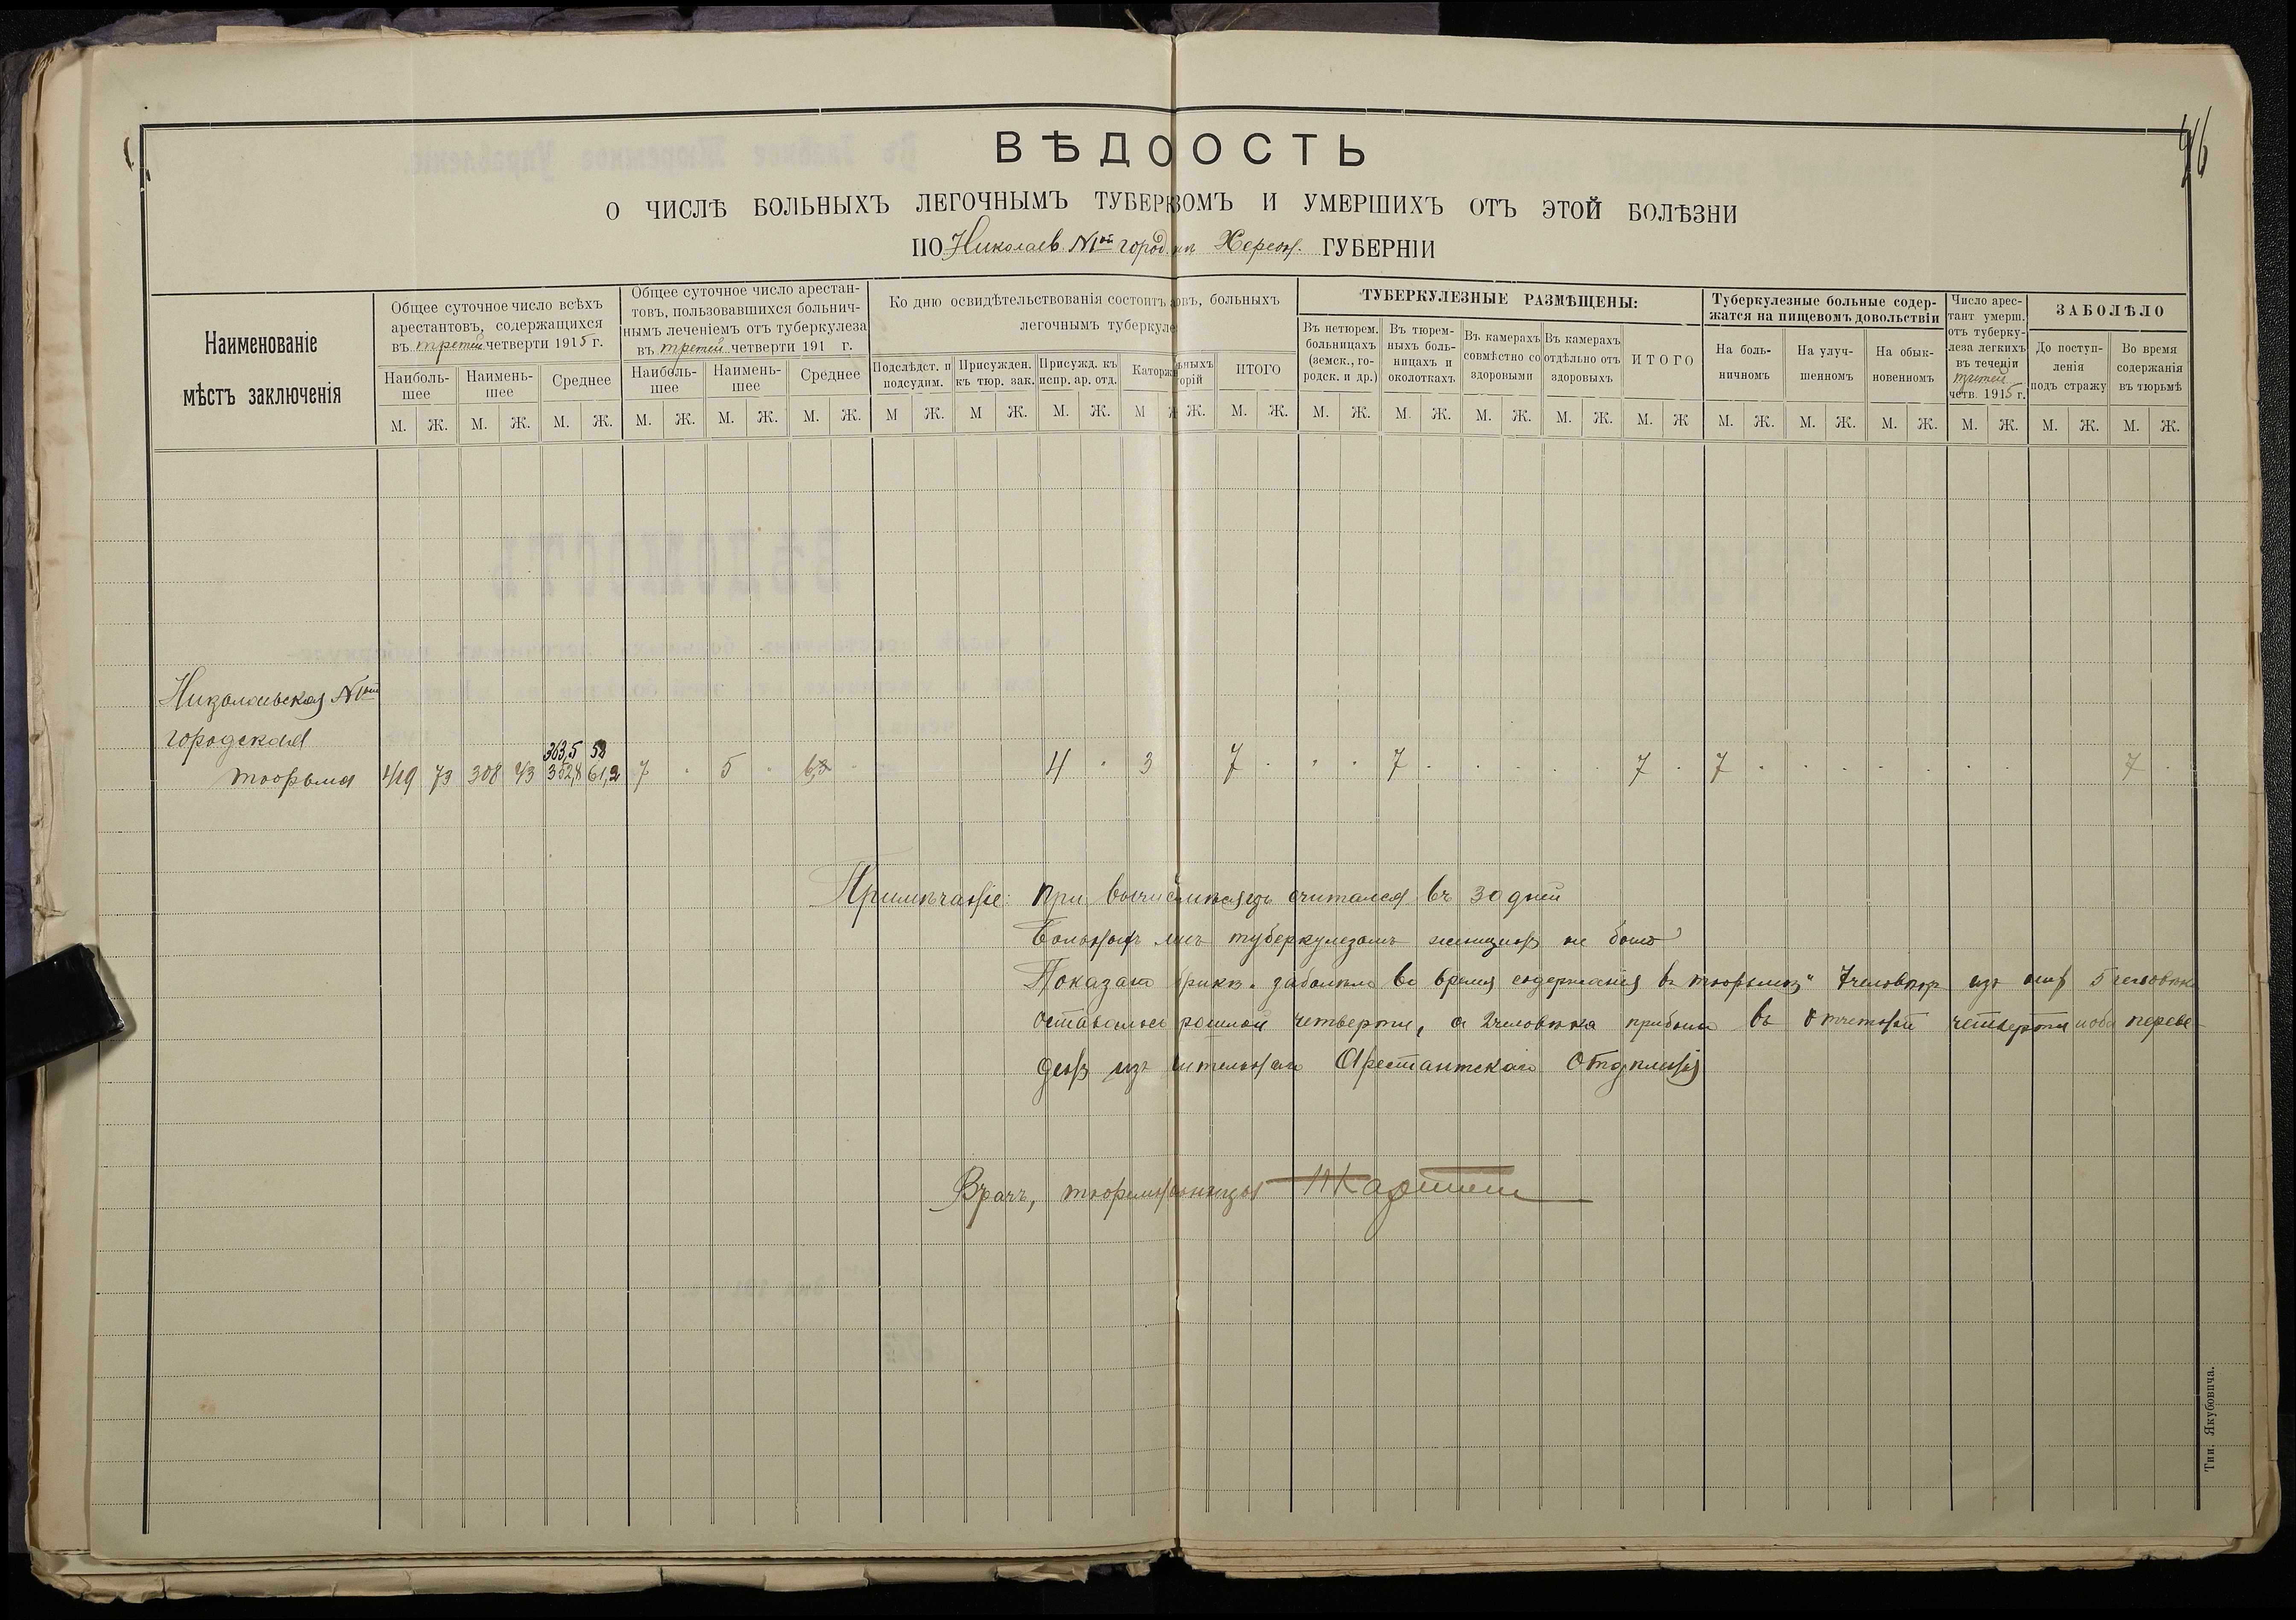 ВѢДООСТЬ
О ЧИСЛѢ БОЛЬНЫХЪ ЛЕГОЧНЫМЪ ТУБЕРКЗОМЪ И УМЕРШИХЪ ОТЪ ЭТОЙ БОЛѢЗНИ
ПО Николаев. №1ой город. Херсон. ГУБЕРНІИ
Наименованіе
мѣстъ заключенія
Общее суточное число всѣхъ
арестантовъ, содержащихся
въ третей четверти 1915 г.
Наиболь-
шее
Наимень-
шее
Среднее
Общее суточное число арестан-
товъ, пользовавшихся больнич-
нымъ леченіемъ отъ туберкулеза
въ третей четверти 191 г.
Наиболь-
шее
Наимень-
шее
Среднее
Ко дню освидѣтельствованія состоитъ овъ, больныхъ
легочнымъ туберкуле
Подслѣдст. и
подсудим.
Присужден.
къ тюр. зак.
Присужд. къ
испр. ар. отд.
Каторж ьныхъ
горій
ИТОГО
ТУБЕРКУЛЕЗНЫЕ РАЗМѢЩЕНЫ:
Въ нетюрем.
больницахъ
(земск., го-
родск. и др.)
Въ тюрем-
ныхъ боль-
ницахъ и
околоткахъ
Въ камерахъ
совмѣстно со
здоровыми
Въ камерахъ
отдѣльно отъ
здоровыхъ
ИТОГО
Туберкулезные больные содер-
жатся на пищевомъ довольствіи
На боль-
ничномъ
На улуч-
шенномъ
На обык-
новенномъ
Число арес-
тант умерш.
отъ туберку-
леза легкихъ
въ теченіи
третей
четв. 1915 г.
ЗАБОЛѢЛО
До поступ-
ленія
подъ стражу
Во время
содержанія
въ тюрьмѣ
М. Ж. М. Ж. М. Ж. М. Ж. М. Ж. М. Ж. М Ж. М Ж. М. Ж. М Ж. М. Ж. М. Ж. М. Ж. М. Ж. М. Ж. М. Ж М. Ж. М. Ж. М. Ж. М. Ж. М. Ж. М. Ж.
Николаевская №1ой
городская
363,5 58
тюрьма 419 73 308 43 352,8 61,2 7 . 5 . . 4 . 3 7 . . . 7 . . . . . 7 . 7 . . . . . . . 7 .
Примѣчаніе: При считался въ 30 дней
Больных туберкулезомъ женщинъ не было
Показано заболѣло во время содержанія въ тюрьмѣ" 7 человѣкъ изъ них 5 человѣкъ
оставалось рошлой четверти, а 2 человѣка прибыли въ отчетной четверти оба переве-
дены изъ ительнаго Арестантскаго Отдѣленія
Врачъ, тюремн
Тип. Якубовича.